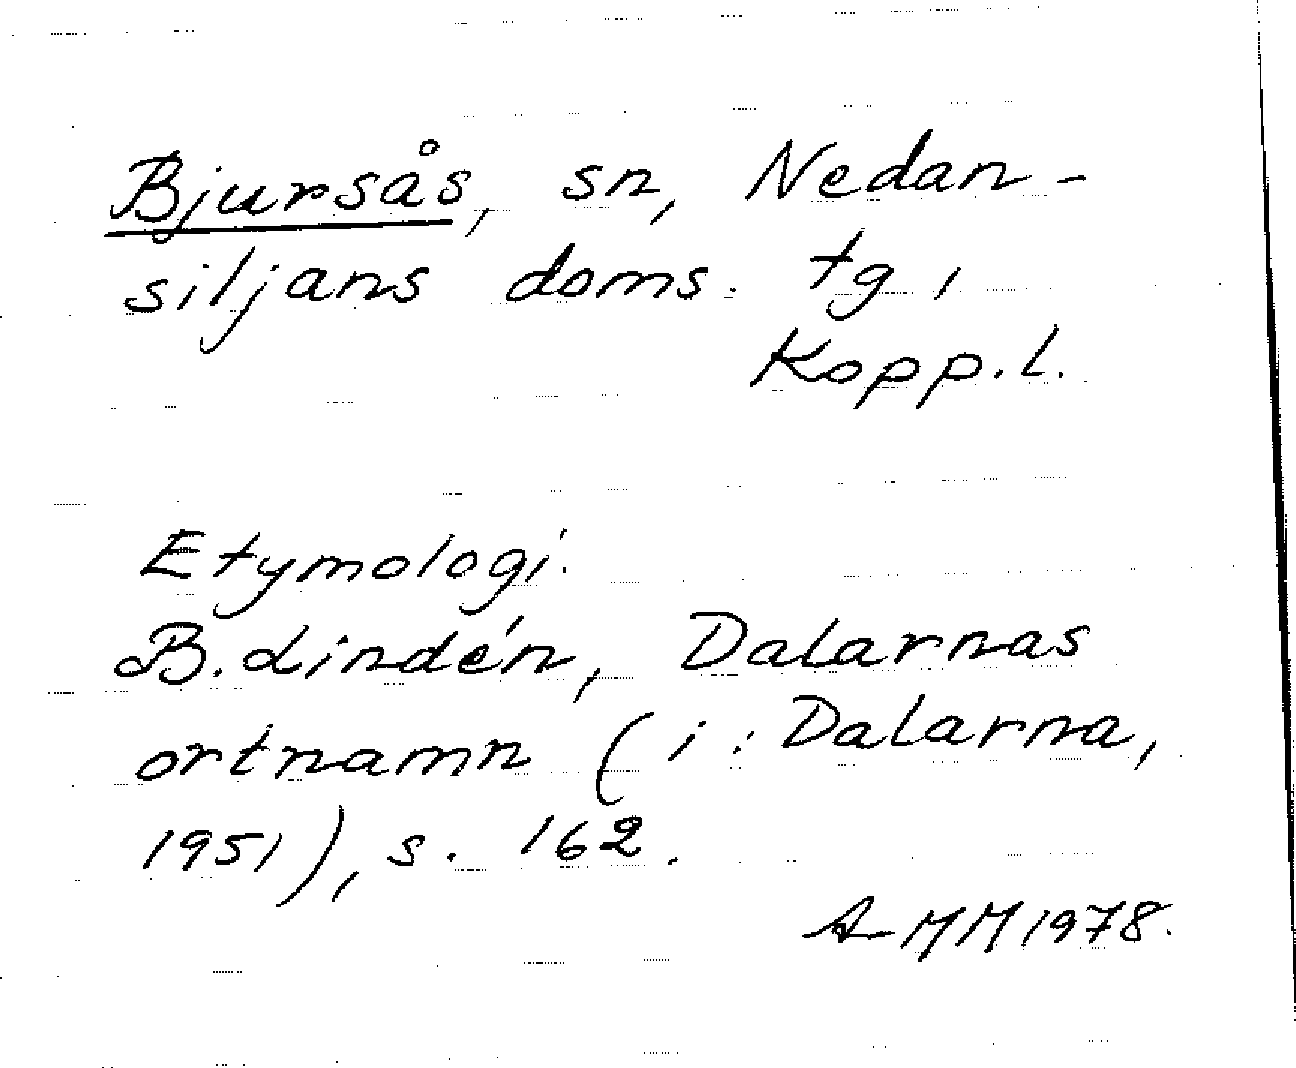 Bjursås, sn, Nedan-
siljans doms. tg,
Kopp.l.
Etymologi:
B. Lindén, Dalarnas
ortnamn (i: Dalarna,
1951), s. 162.
A-MM 1978.